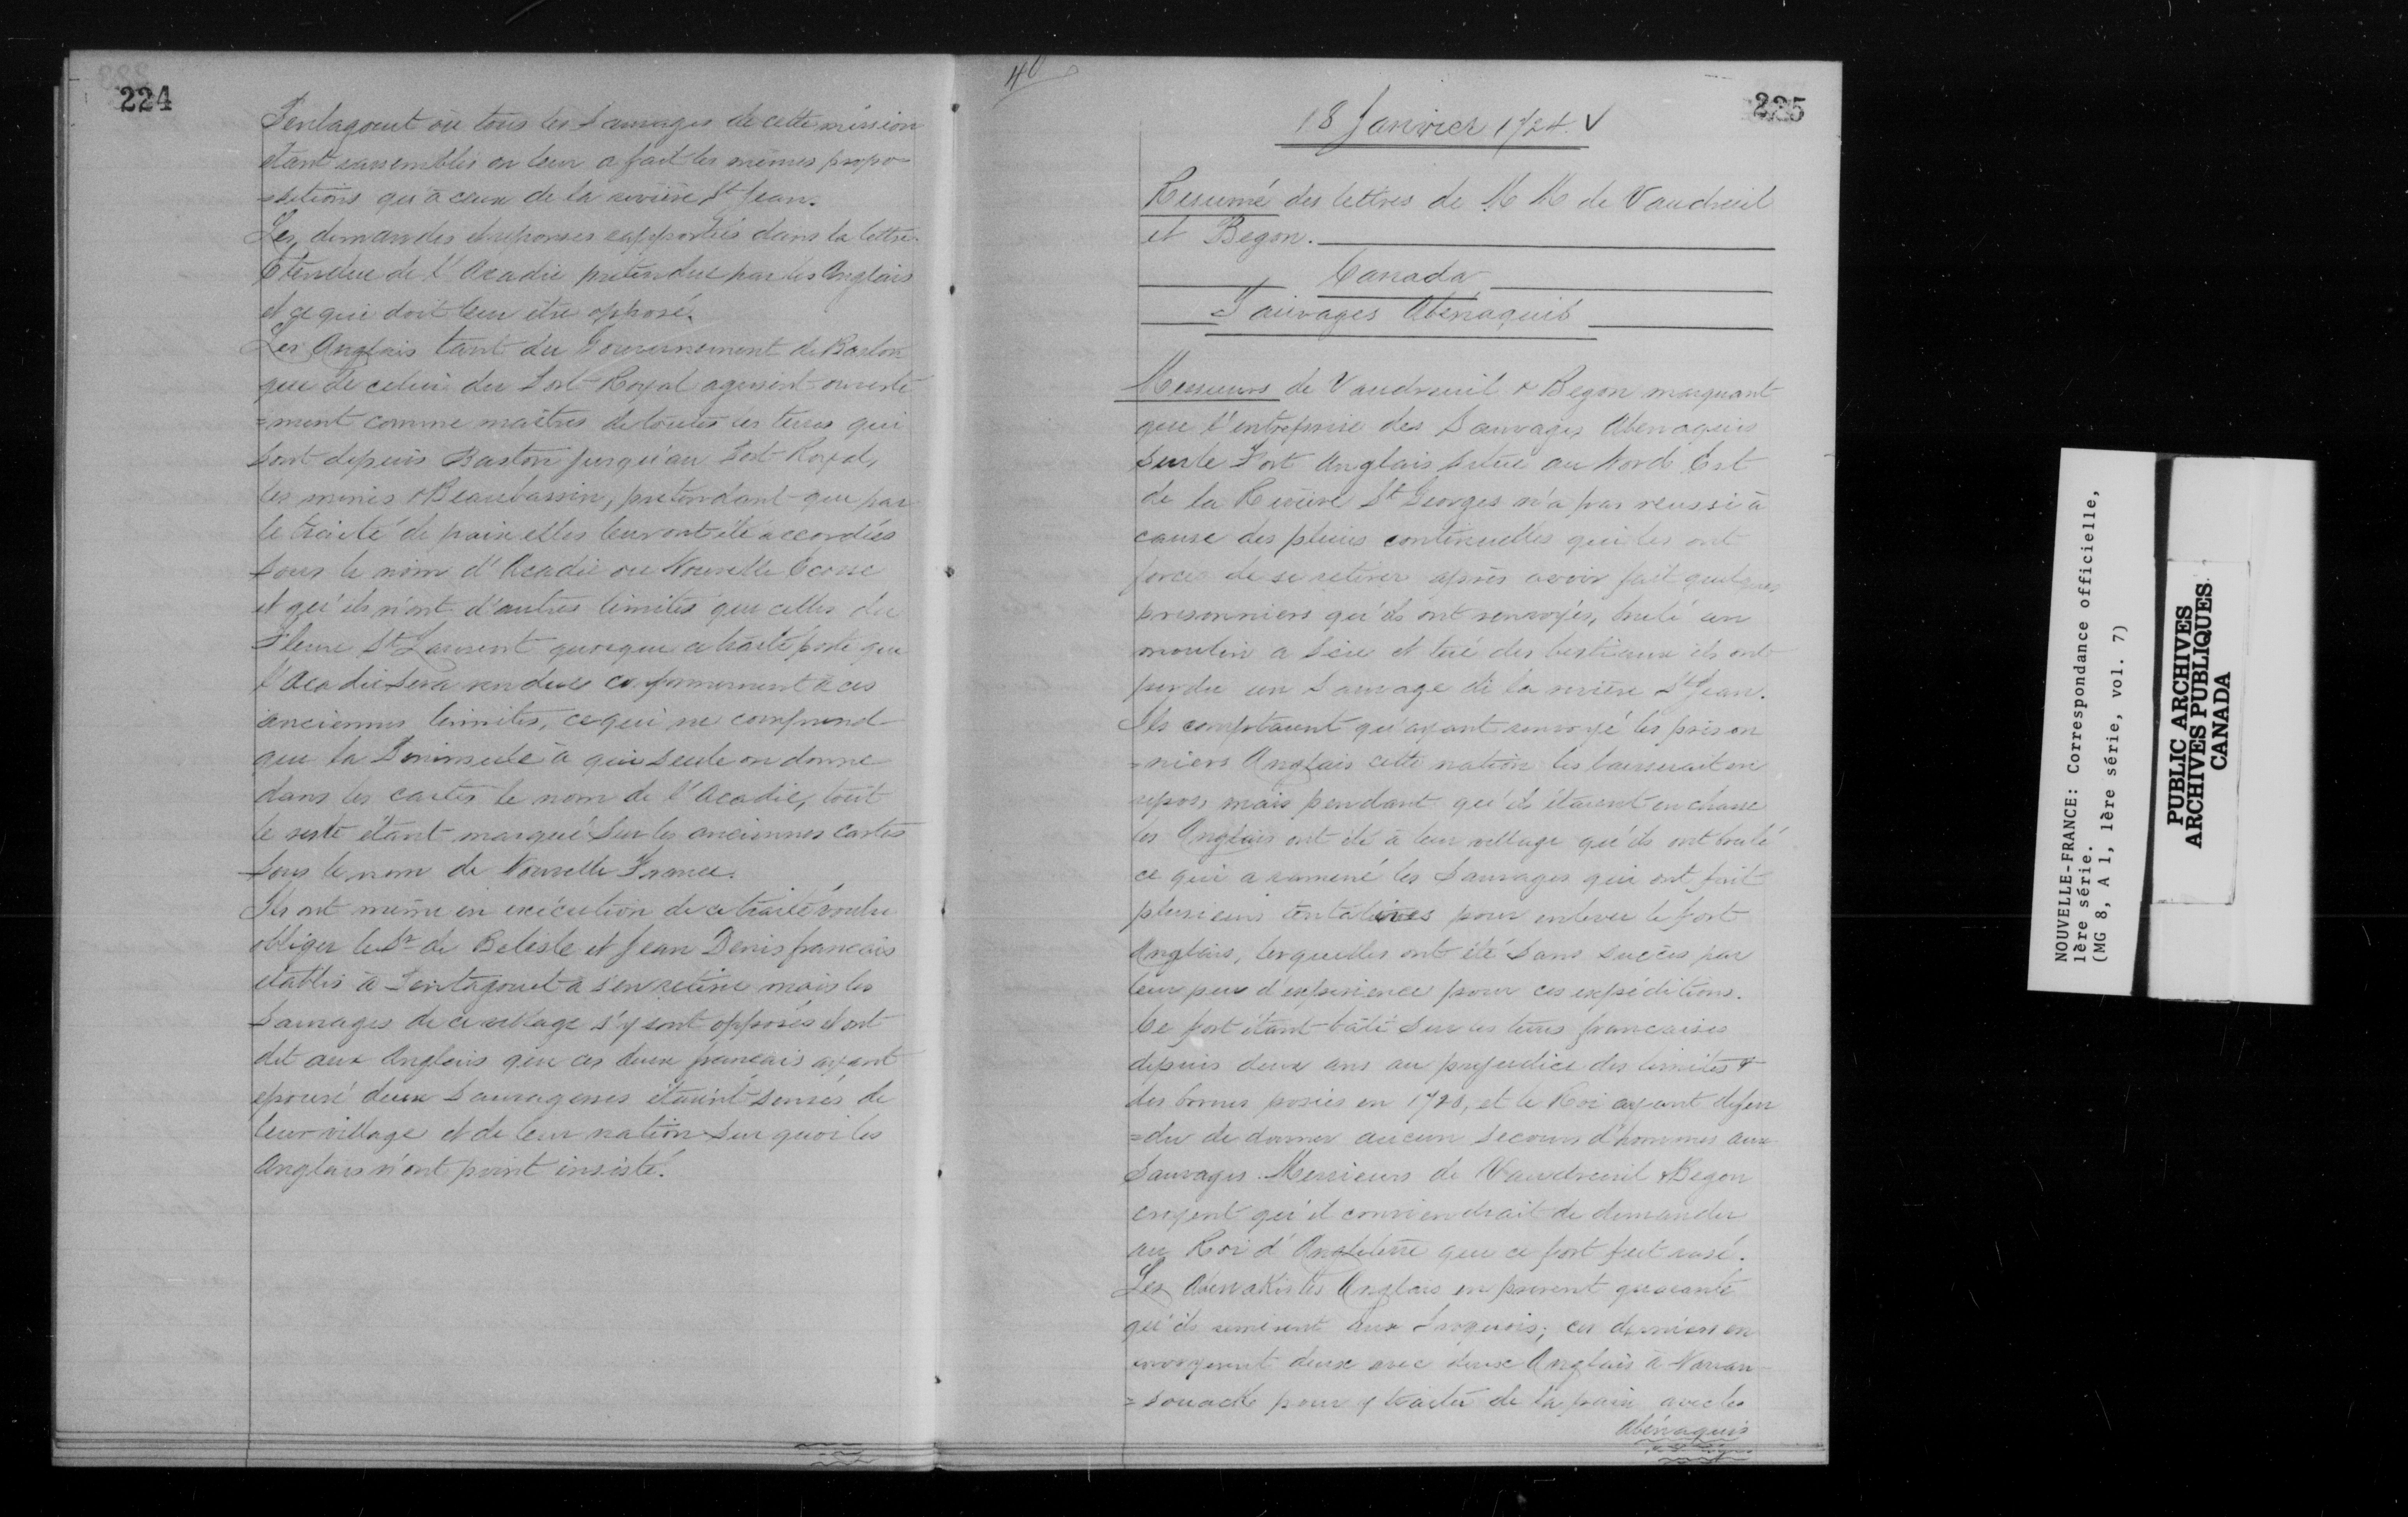 224
Pentagouet où tous les Sauvages de cette mission
étant rassemblés on leur a fait les mêmes propo
=sitions qu'à ceux de la rivière St Jean.
Les demandes et reponses rapportées dans la lettre.
Etendue de l'Acadie pretendue par les Anglais
et ce qui doit leur être opposé.
Les Anglais tant du Gouvernement de Baston
que de celui du Port-Royal agissent ouverte
=ment comme maîtres de toutes les terres qui
sont depuis Baston jusqu'au Port Royal,
les mines & Beaubassin, pretendant que par
le traité de paix elles leur ont été accordées
sous le nom d'Acadie ou Nouvelle Ecosse
et qu'ils n'ont d'autres limites que celles du
Fleuve St Laurent quoique ce traité porte que
l'Acadie sera rendue conformement à ces
anciennes limites, ce qui ne comprend
que la Peninsule à qui seule on donne
dans les cartes le nom de l'Acadie, tout
le reste étant marqué sur les anciennes cartes
sous le nom de Nouvelle France.
Ils ont même en exécution de ce traité voulu
obliger le Sr de Belisle et Jean Denis francais
etablis à Pentagouet à s'en retirer mais les
Sauvages de ce village s'y sont opposés et ont
dit aux Anglais que ces deux francais ayant
epousé deux Sauvagesses étaient sensés de
leur village et de leur nation sur quoi les
Anglais n'ont point insisté.
40
225
18 Janvier 1724. V
Resumé des lettres de M M de Vaudreuil
et Begon.
Canada
Sauvages Abénaquis
Messieurs de Vaudreuil & Begon marquant
que l'entreprise des Sauvages Abenaquis
sur le Fort Anglais situé au Nord Est
de la Rivière St Georges n'a pas reussi à
cause des pluies continuelles qui les ont
forcé de se retirer après avoir fait quelques
prisonniers qu'ils ont renvoyés, brulé un
moulin a scie et tué des bestiaux ils ont
perdu un Sauvage de la rivière St Jean.
Ils comptaient qu'ayant renvoyé les prison
=niers Anglais cette nation les laisserait en
repos, mais pendant qu'ils étaient en chasse
les Anglais ont été à leur village qu'ils ont brulé
ce qui a ramené les Sauvages qui ont fait
plusieurs tentatives pour enlever le fort
Anglais, lesquelles ont été sans succès par
leur peu d'experience pour ces expéditions.
Ce fort étant bâti sur les terres francaises
depuis deux ans au prejudice des limites &
des bornes posées en 1720, et le Roi ayant defen
=du de donner aucun secours d'hommes aux
Sauvages. Messieurs de Vaudreuil & Begon
croyent qu'il conviendrait de demander
au Roi d'Angleterre que ce fort fut rasé.
Les Abenakis les Anglais en prirent quarante
qu'ils aux Iroquois; ces derniers en
envoyerent deux avec deux Anglais à Naran-
=souack pour y traiter de la paix avec les
Abénaquis
NOUVELLE-FRANCE: Correspondance officielle,
1ère série.
(MG 8, A 1, 1ère série, vol. 7)
PUBLIC ARCHIVES
ARCHIVES PUBLIQUES
CANADA